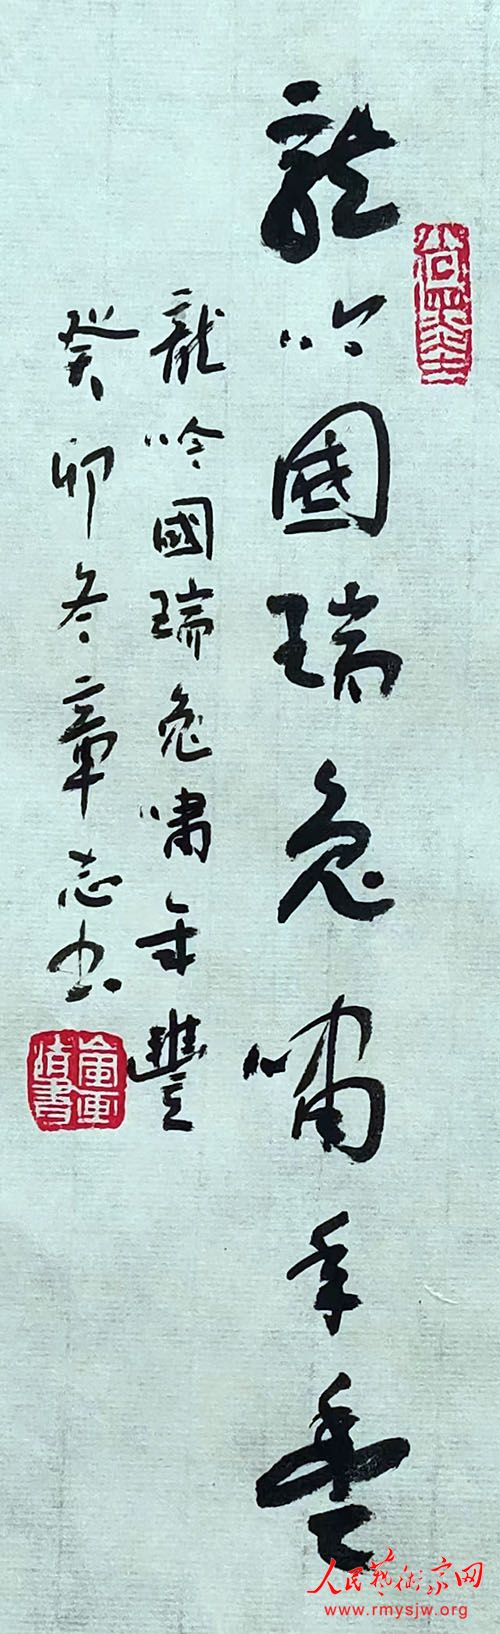 龍吟國瑞兔嘯年豐
龍吟國瑞兔嘯年豐
癸卯冬章志書
人民藝術家网
www.rmysjw.org